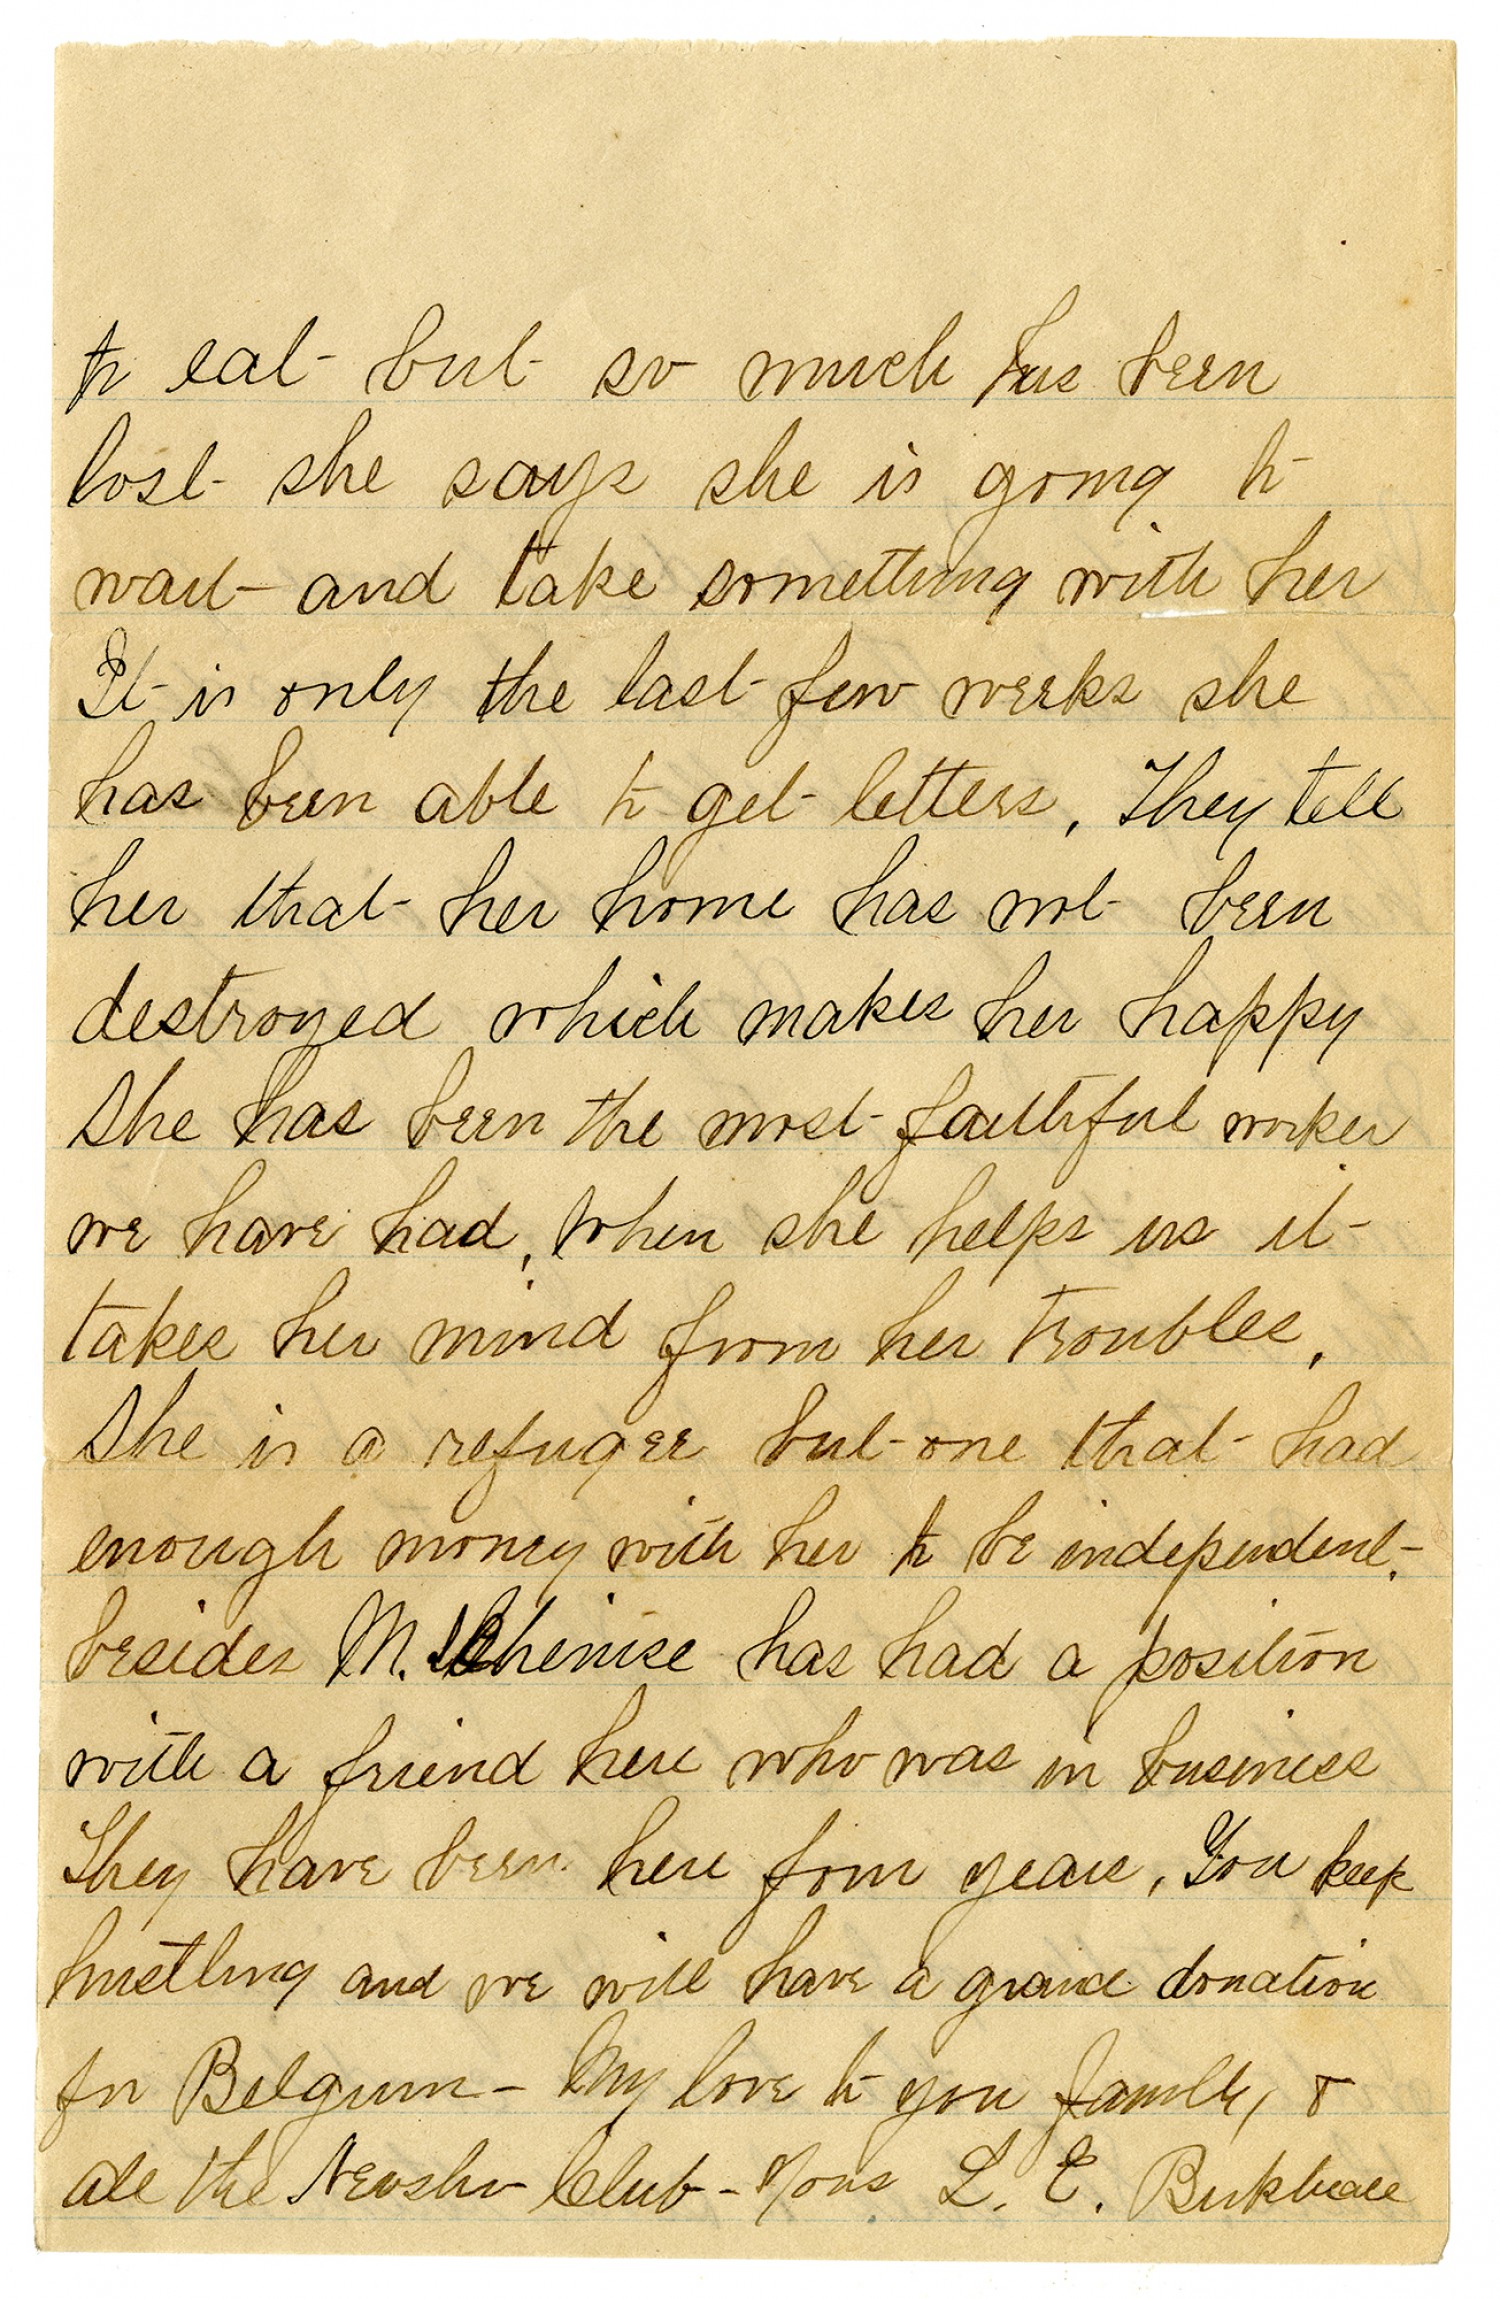 to eat but so much has been
lost she says she is going to
wait and take something with her
It is only the last few weeks she
has been able to get letters. They tell
her that her home has not been
destroyed which makes her happy
She has been the most faithful worker
we have had, When she helps us it
takes her mind from her troubles.
She is a refugee but one that had
enough money with her to be independent.
besides M. has had a position
with a friend here who was in business
They have been here four years, You keep
hustling and we will have a grand donation
for Belgium - My love to you family, &
all the Neosho Club - Yours L. E.